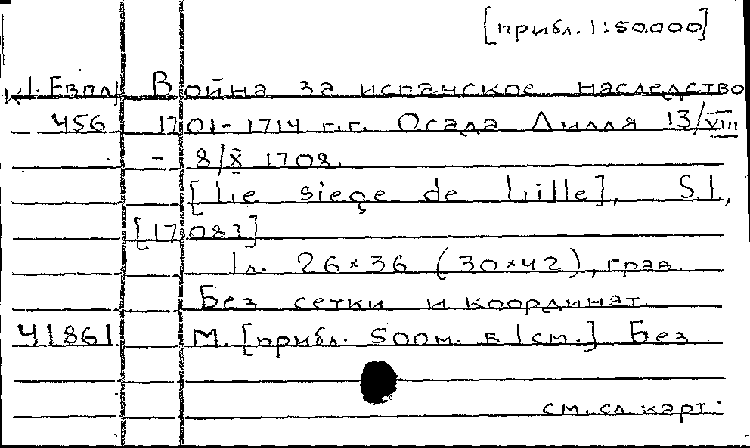 [прибл. 1:50.000]
К1. Евпл Война за испанское наследство
456 1701-1714 г.г. Осада Лилля 13/VIII
- 8/X 1708.
[Le siege de Lille], S.l,
[1708?]
1л. 26×36 (30×42), грав.
Без сетки и координат.
41861 М. [прибл. 500м. в 1см.] Без
см. сл. карт.